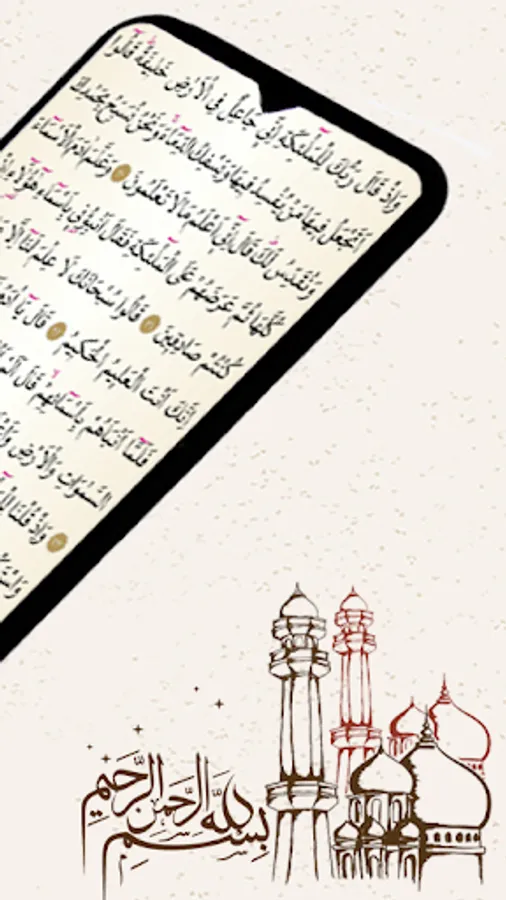 وَإِذْ قَالَ رَبُّكَ لِلْمَلٰٓئِكَةِ اِنّ۪ي جَاعِلٌ فِي الْاَرْضِ خَل۪يفَةًۜ قَالُٓوا
اَتَجْعَلُ ف۪يهَا مَنْ يُفْسِدُ ف۪يهَا وَيَسْفِكُ الدِّمَٓاءَۚ وَنَحْنُ نُسَبِّحُ بِحَمْدِكَ
وَنُقَدِّسُ لَكَۜ قَالَ اِنّ۪ٓي اَعْلَمُ مَا لَا تَعْلَمُونَ ۝ وَعَلَّمَ اٰدَمَ الْاَسْمَٓاءَ
كُلَّهَا ثُمَّ عَرَضَهُمْ عَلَى الْمَلٰٓئِكَةِ فَقَالَ اَنْبِؤُ۫ن۪ي بِاَسْمَٓاءِ هٰٓؤُ۬لَٓاءِ
كُنْتُمْ صَادِق۪ينَ ۝ قَالُوا سُبْحَانَكَ لَا عِلْمَ لَنَٓا اِلَّا
اِنَّكَ اَنْتَ الْعَل۪يمُ الْحَك۪يمُ ۝ قَالَ يَٓا اٰدَمُ
فَلَمَّٓا اَنْبَاَهُمْ بِاَسْمَٓائِهِمْۙ قَالَ اَلَمْ
السَّمٰوَاتِ وَالْاَرْضِۙ
۝ وَاِذْ قُلْنَا
بسم الله الرحمن الرحيم